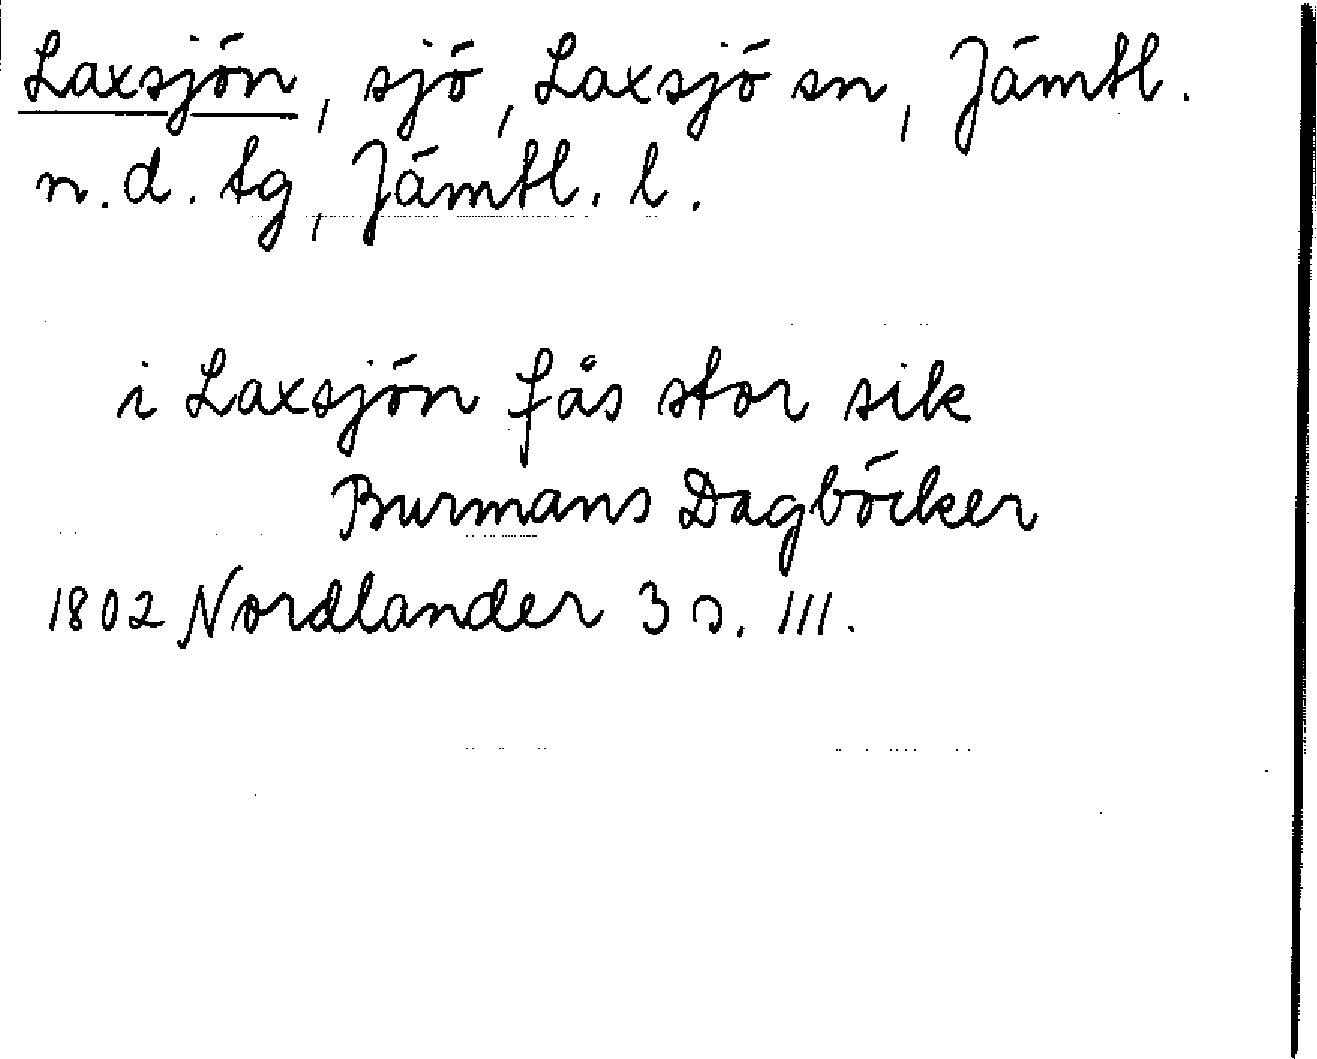 Laxsjön, sjö, Laxsjö sn, Jämtl.
n.d. tg, Jämtl. l.
i Laxsjön fås stor sik
Burmans Dagböcker
1802 Nordlander 3 s. 111.